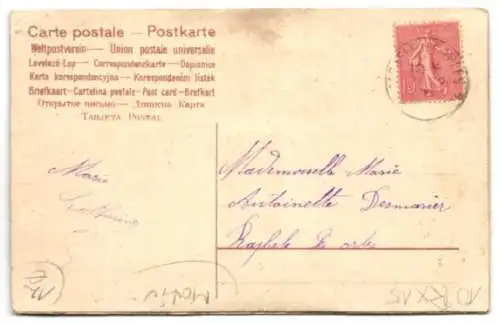 Carte postale – Postkarte
Weltpostverein — Union postale universelle
Levelező-Lap — Correspondenzkarte — Dopisnice
Karta korespondencyjna — Korespondenční lístek
Briefkaart — Cartolina postale — Post card — Brefkort
Открытое письмо — Дописна Карта
Tarjeta Postal
Marie
Mademoiselle Marie
Antoinette Desmarier
Raphele
10